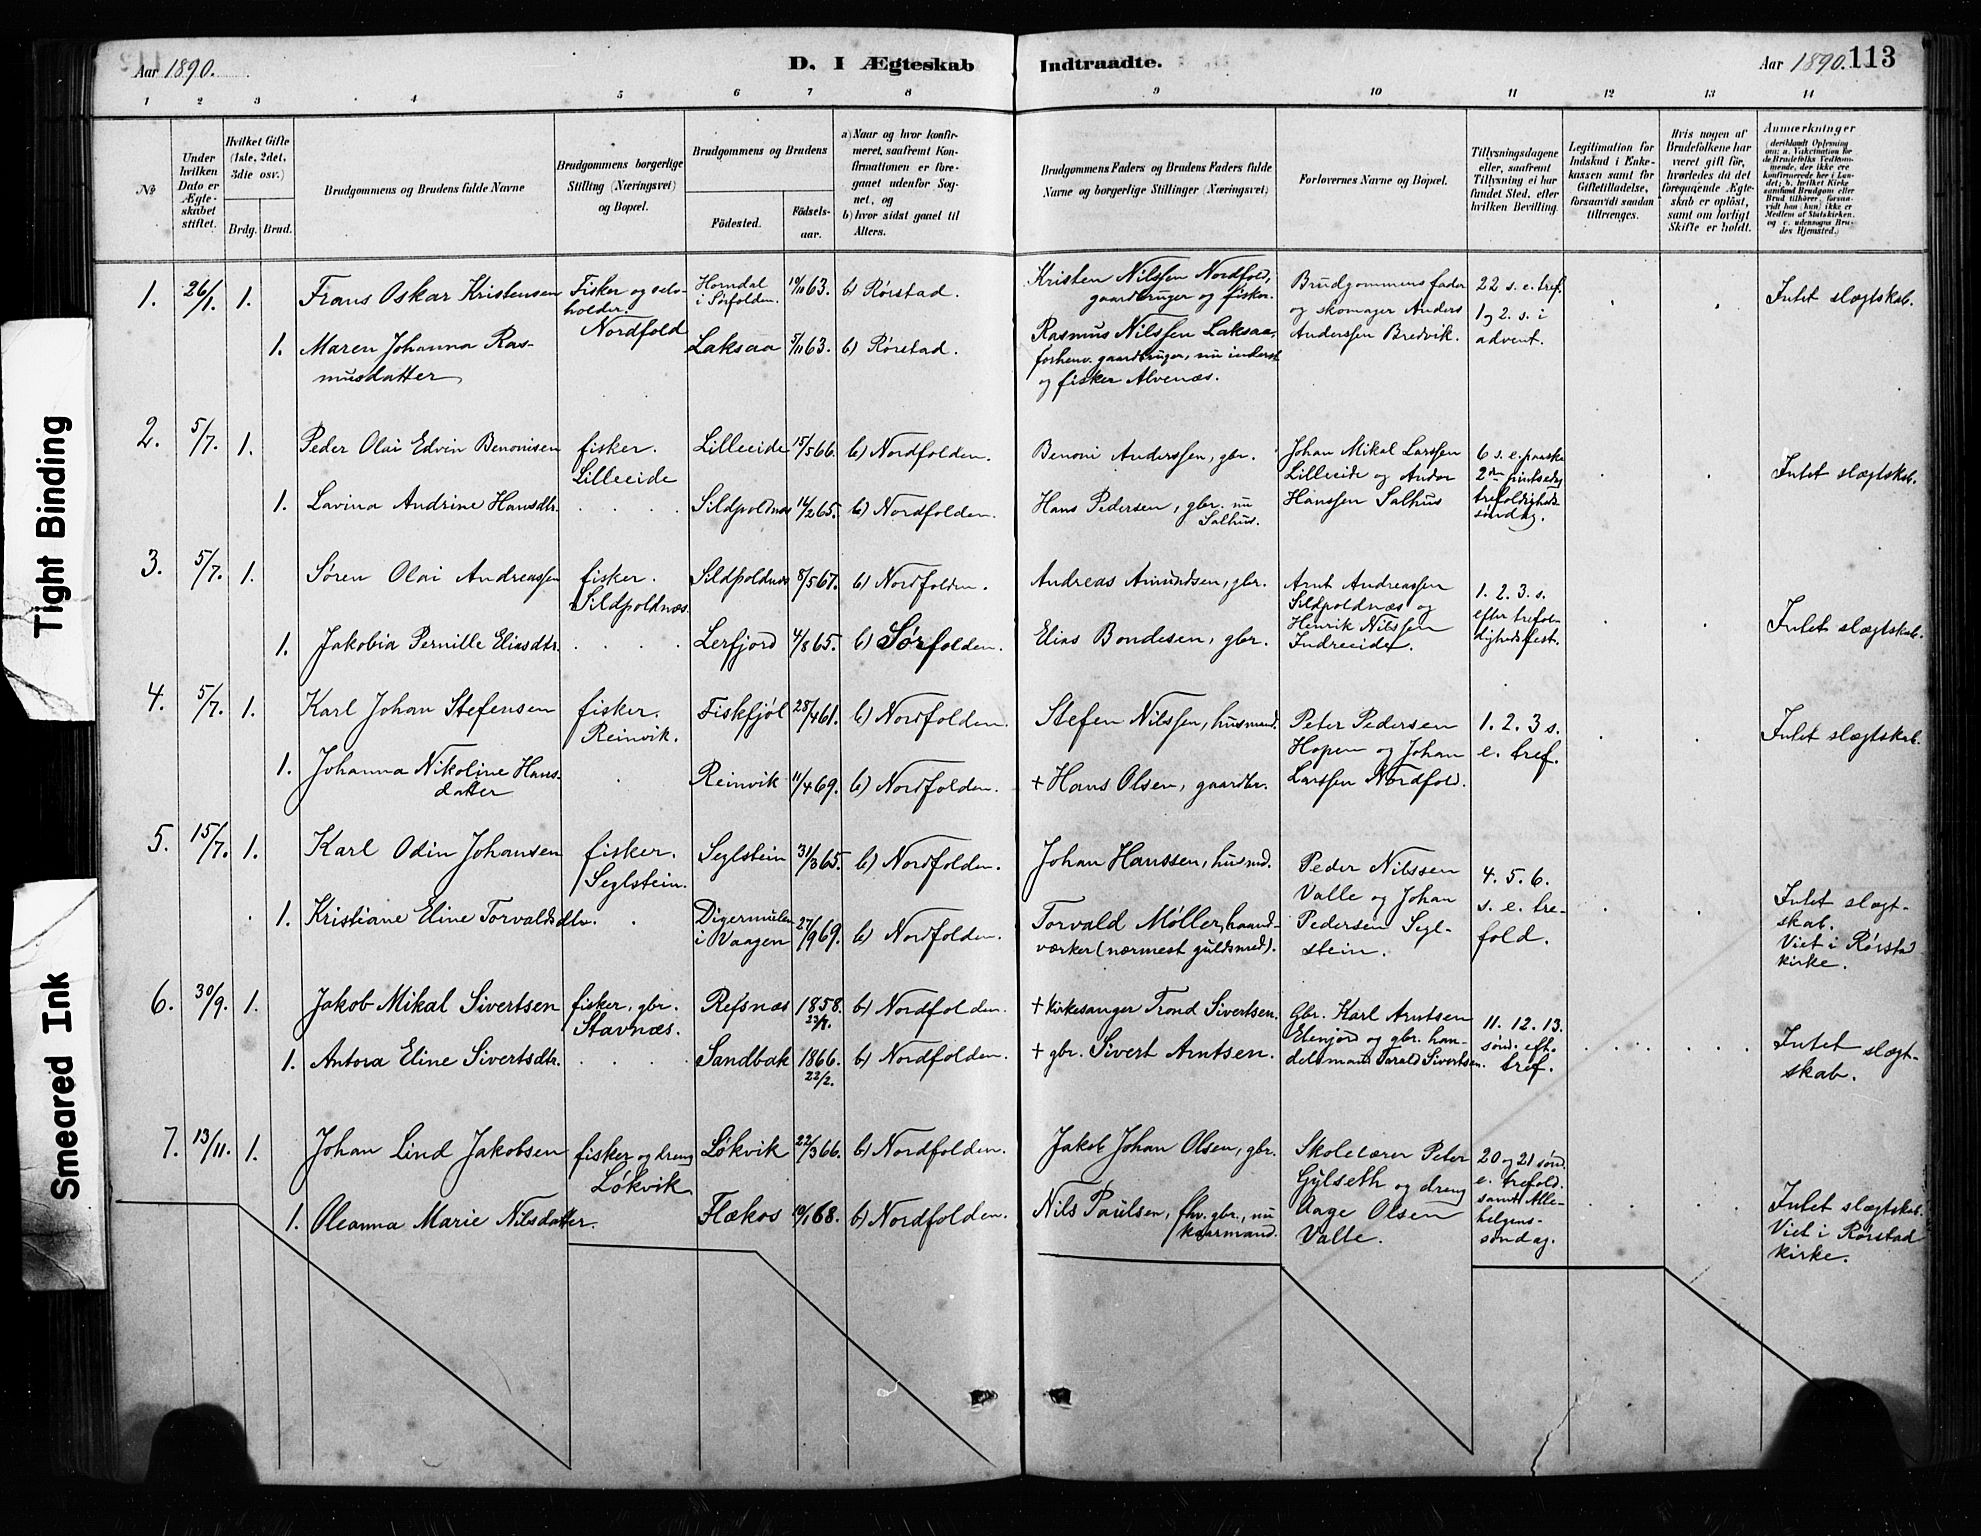 Aar 1890.
D. I Ægteskab Indtraadte.
Aar 1890. 113
1 2 3 4 5 6 7 8 9 10 11 12 13 14
No
Under hvilken Dato er Ægteskabet stiftet.
Hvilket Gifte (1ste, 2det, 3die osv.)
Brdg. Brud.
Brudgommens og Brudens fulde Navne
Brudgommens borgerlige Stilling (Næringsvei) og Bopæl.
Brudgommens og Brudens
Fødested.
Fødselsaar.
a) Naar og hvor konfirmeret, saafremt Konfirmationen er foregaaet udenfor Sognet, og
b) hvor sidst gaaet til Alters.
Brudgommens Faders og Brudens Faders fulde Navne og borgerlige Stillinger (Næringsvei)
Forlovernes Navne og Bopæl.
Tillysningsdagene eller, saafremt Tillysning ei har fundet Sted, efter hvilken Bevilling.
Legitimation for Indskud i Enkekassen samt for Giftetilladelse, forsaavidt saadan tiltrænges.
Hvis nogen af Brudefolkene har været gift før, hvorledes da det foregaaende Ægteskab er opløst, samt om lovligt Skifte er holdt.
Anmærkninger (deriblandt Oplysning om: a. Vaccination for de Brudefolks Vedkommende, der ikke ere konfirmerede her i Landet; b. hvilket Kirkesamfund Brudgom eller Brud tilhører, forsaavidt han (hun) ikke er Medlem af Statskirken, og c. udensogns Brudes Hjemsted.)
1. 26/1. 1. Frans Oskar Kristensen
Fisker og selvholder. Nordfold
Horndal i Sørfolden 19/11 63. b) Rørstad.
Kristen Nilssen Nordfold, gaardbruger og fisker.
Brudgommens fader og skomager Anders Anderssen Bredvik.
22 s. e. tref. 1 og 2. s. i advent.
Intet slægtskab.
1. Maren Johanna Rasmusdatter
Laksaa 5/11 63. b) Rørstad.
Rasmus Nilssen Laksaa, forhenv. gaardbruger, nu inderst og fisker Alvenæs.
2. 5/7. 1. Peder Olai Edvin Benonisen
fisker. Lilleeide
Lilleeide 15/5 66. b) Nordfolden.
Benoni Anderssen, gbr.
Johan Mikal Larssen Lilleeide og Andor Hanssen Salhus
6 s. e. paaske 2den pintsedag trefoldigheds søndag.
Intet slægtskab.
1. Lavina Andrine Hansdtr.
Sildpoldnæs 14/2 65. b) Nordfolden.
Hans Pedersen, gbr. nu Salhus.
3. 5/7. 1. Søren Olai Andreassen
fisker. Sildpoldnæs.
Sildpoldnæs 8/5 67. b) Nordfolden.
Andreas Amundsen, gbr.
Arnt Andreassen Sildpoldnæs og Henrik Nilssen Indreeide.
1. 2. 3. s. efter trefoldighedsfest.
Intet slægtskab.
1. Jakobia Pernille Eliasdtr.
Lerfjord 4/8 65. b) Sørfolden.
Elias Bondesen, gbr.
4. 5/7. 1. Karl Johan Stefensen
fisker. Reinvik.
Fiskfjøl 28/4 61. b) Nordfolden.
Stefen Nilssen, husmand.
Peter Pedersen Hopen og Johan Larssen Nordfold.
1. 2. 3 s. e. tref.
Intet slægtskab.
1. Johanna Nikoline Hansdatter
Reinvik 11/4 69. b) Nordfolden.
+ Hans Olsen, gaardbr.
5. 15/7. 1. Karl Odin Johansen
fisker. Seglstein.
Seglstein 31/3 65. b) Nordfolden.
Johan Hanssen, husmd.
Peder Nilssen Valle og Johan Pedersen Seglstein.
4. 5. 6. s. e. trefold.
Intet slægtskab. Viet i Rørstad kirke.
1. Kristiane Eline Torvaldsdtr.
Digermulen i Vaagen 27/9 69. b) Nordfolden.
Torvald Møller, haandværker (nærmest guldsmed).
6. 30/9. 1. Jakob Mikal Sivertsen
fisker, gbr. Stavnæs.
Refsnæs 1858. 23/7. b) Nordfolden.
+ kirkesanger Trond Sivertsen.
Gbr. Karl Arntsen Elenjord og gbr. handelsmand Tarald Sivertsen.
11. 12. 13. sønd. eft. tref.
Intet slægtskab.
1. Antora Eline Sivertsdtr.
Sandbak 1866. 22/2. b) Nordfolden.
+ gbr. Sivert Arntsen.
7. 13/11. 1. Johan Lind Jakobsen
fisker og dreng Løkvik
Løkvik 22/3 66. b) Nordfolden.
Jakob Johan Olsen, gbr.
Skolelærer Peter Gylseth og dreng Aage Olsen Valle.
20 og 21 sønd. e. trefold. samt Allehelgenssøndag.
Intet slægtskab. Viet i Rørstad kirke.
1. Oleanna Marie Nilsdatter.
Flækos 19/1 68. b) Nordfolden.
Nils Paulsen, fhv. gbr., nu kaarmand.
Tight Binding
Smeared Ink